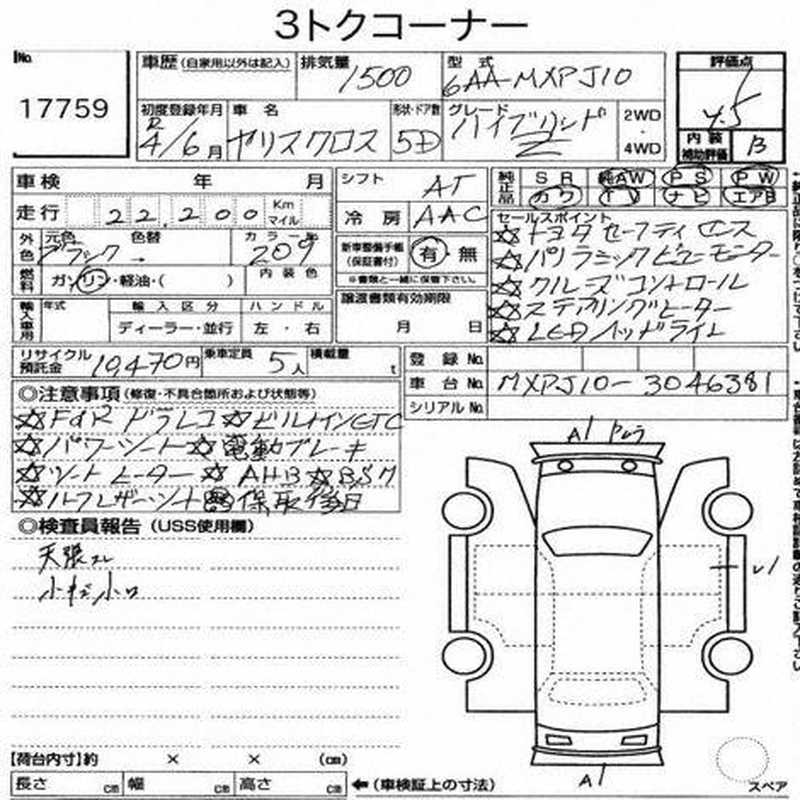 3トクコーナー
No.
17759
車歴 (自家用以外は記入)
排気量 1500
型式 6AA-MXPJ10
評価点 4.5
初度登録年月 R4/6月
車名 ヤリスクロス
形状・ドア数 5D
グレード ハイブリッド Z
2WD・4WD
内装補助評価 B
車検 年 月
シフト AT
純正品 SR 純AW PS PW
カワ TV ナビ エアB
走行 22,200 Km マイル
冷房 AAC
セールスポイント
☆トヨタセーフティセンス
☆パノラミックビューモニター
☆クルーズコントロール
☆ステアリングヒーター
☆LEDヘッドライト
外色 元色 ブラック 色替
カラーNo. 209
新車整備手帳(保証書付) 有・無
※書類と一緒に保管下さい。
燃料 ガソリン・軽油・( )
内装色
輸入車用 年式 輸入区分 ハンドル
ディーラー・並行 左・右
譲渡書類有効期限
月 日
リサイクル預託金 10,470円
乗車定員 5人
積載量 t
登録No.
車台No. MXPJ10-3046381
シリアルNo.
◎注意事項 (修復・不具合箇所および状態等)
☆F&R ドラレコ ☆ビルトインETC
☆パワーシート ☆電動ブレーキ
☆シートヒーター ☆AHB ☆BSM
☆ハーフレザーシート 保取後日
◎検査員報告 (USS使用欄)
天張
小キズ小凹
A1
A1
【荷台内寸】約 × × (cm)
長さ cm 幅 cm 高さ cm
←(車検証上の寸法)
スペア